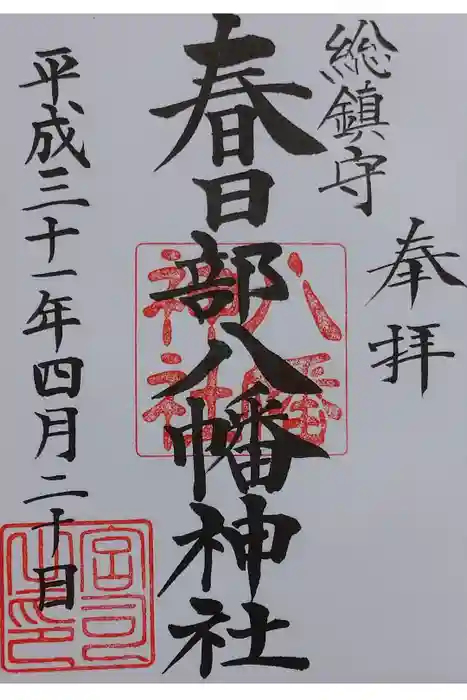 奉拝
総鎮守
春日部八幡神社
八幡
神社
平成三十一年四月二十日
宮司
之印